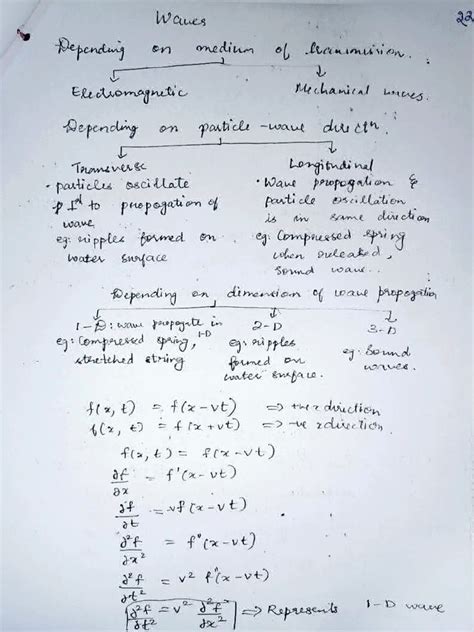 Waves
22
Depending on medium of transmission.
Electromagnetic
Mechanical waves.
Depending on particle-wave directn.
Transverse
• particles oscillate
to propogation of
wave
eg: ripples formed on
water surface
Longitudinal
• Wave propogation &
particle oscillation
is in same direction
eg: Compressed spring
when released,
sound wave..
Depending on dimension of wave propogation
1-D: wave propogate in 1-D
eg: Compressed spring,
stretched string
2-D
eg: ripples
formed on
water surface.
3-D
eg: Sound
waves.
f(x, t) = f(x-vt) ⇒ +ve x direction
f(x, t) = f(x+vt) ⇒ -ve x direction
f(x, t) = f(x-vt)
∂f/∂x = f'(x-vt)
∂f/∂t = vf(x-vt)
∂²f/∂x² = f''(x-vt)
∂²f/∂t² = v² f''(x-vt)
∂²f/∂t² = v² ∂²f/∂x² ⇒ Represents 1-D wave